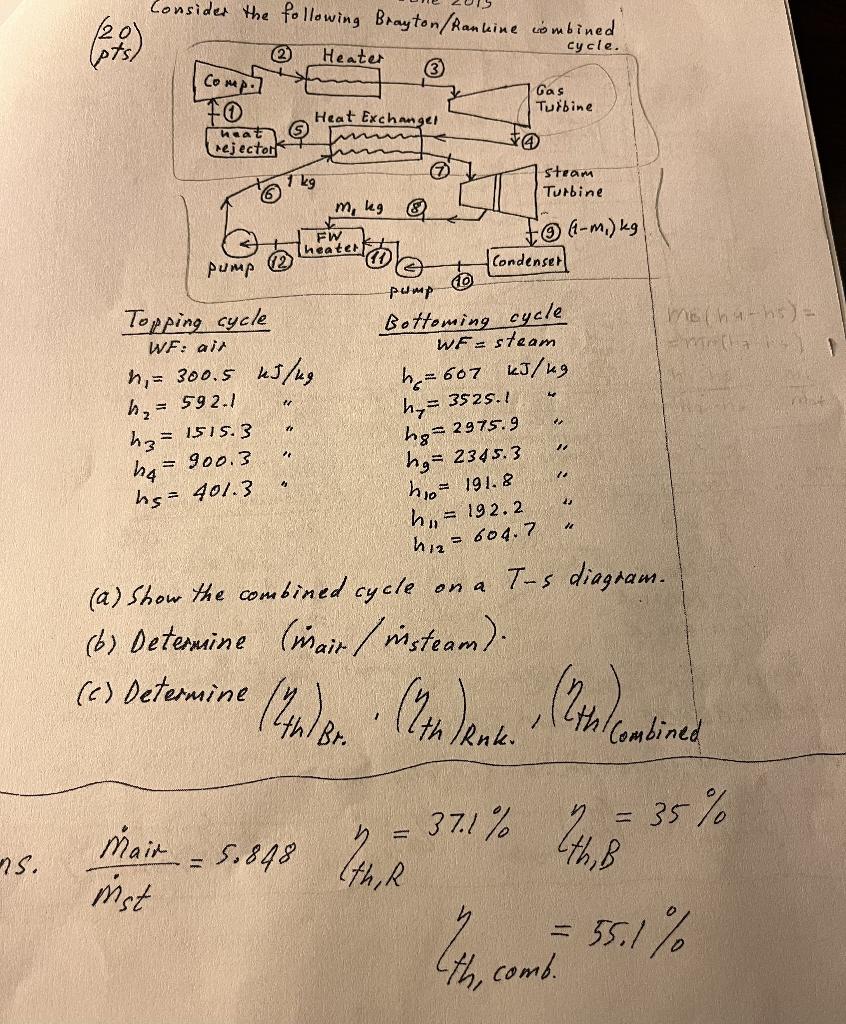 2015
(20 pts)
Consider the following Brayton/Rankine combined
cycle.
② Heater
③
Comp.
Gas
Turbine
①
Heat Exchanger
heat
rejector
⑤
④
⑦
steam
Turbine
⑥ 1 kg
m, kg ⑧
⑨ (1-m,) kg
FW
heater
pump ⑫
⑪
Condenser
pump
⑩
Topping cycle
WF: air
h₁ = 300.5 kJ/kg
h₂ = 592.1 "
h₃ = 1515.3 "
h₄ = 900.3 "
h₅ = 401.3 "
Bottoming cycle
WF = steam
h₆ = 607 kJ/kg
h₇ = 3525.1 "
h₈ = 2975.9 "
h₉ = 2345.3 "
h₁₀ = 191.8 "
h₁₁ = 192.2 "
h₁₂ = 604.7 "
(a) Show the combined cycle on a T-s diagram.
(b) Determine (ṁair / ṁsteam).
(c) Determine (ηth)Br. , (ηth)Rnk. , (ηth)Combined
ns. ṁair / ṁst = 5.848
ηth,R = 37.1 %
ηth,B = 35 %
ηth, comb. = 55.1 %